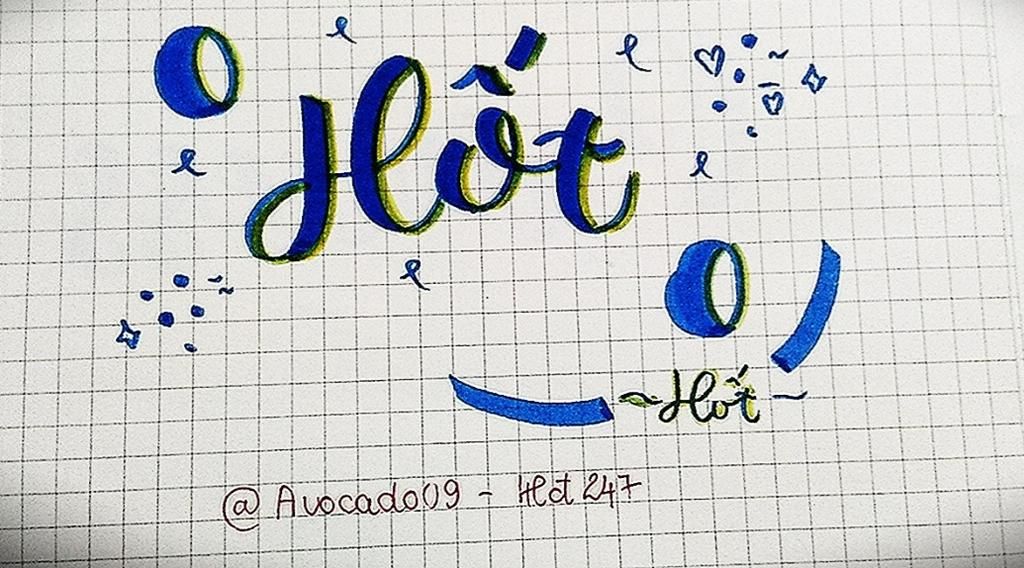 Hốt
~Hốt~
@Avocado09 - Hot247